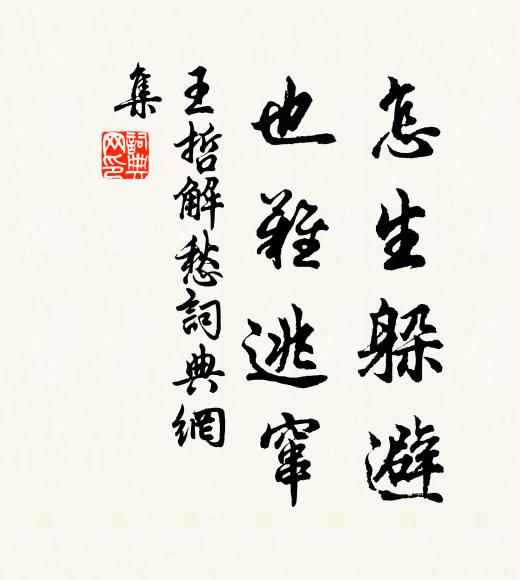 怎生躲避
也難逃竄
王哲解愁詞典網
集
詞典網印